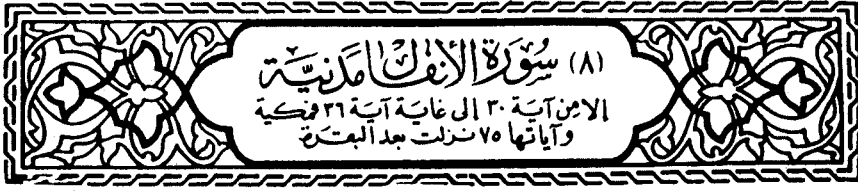 (٨) سُورَة الأنفال مَدَنيَّة
إلا مِن آيَة ٣٠ إلى غايَة آيَة ٣٦ فمكية
وآياتها ٧٥ نزلت بعد البقرة